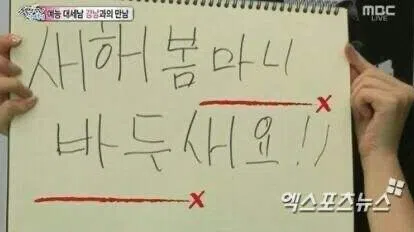 예능 대세남 강남과의 만남
MBC
LIVE
새해 봄마니
바두새요!!
X
X
엑스포츠뉴스